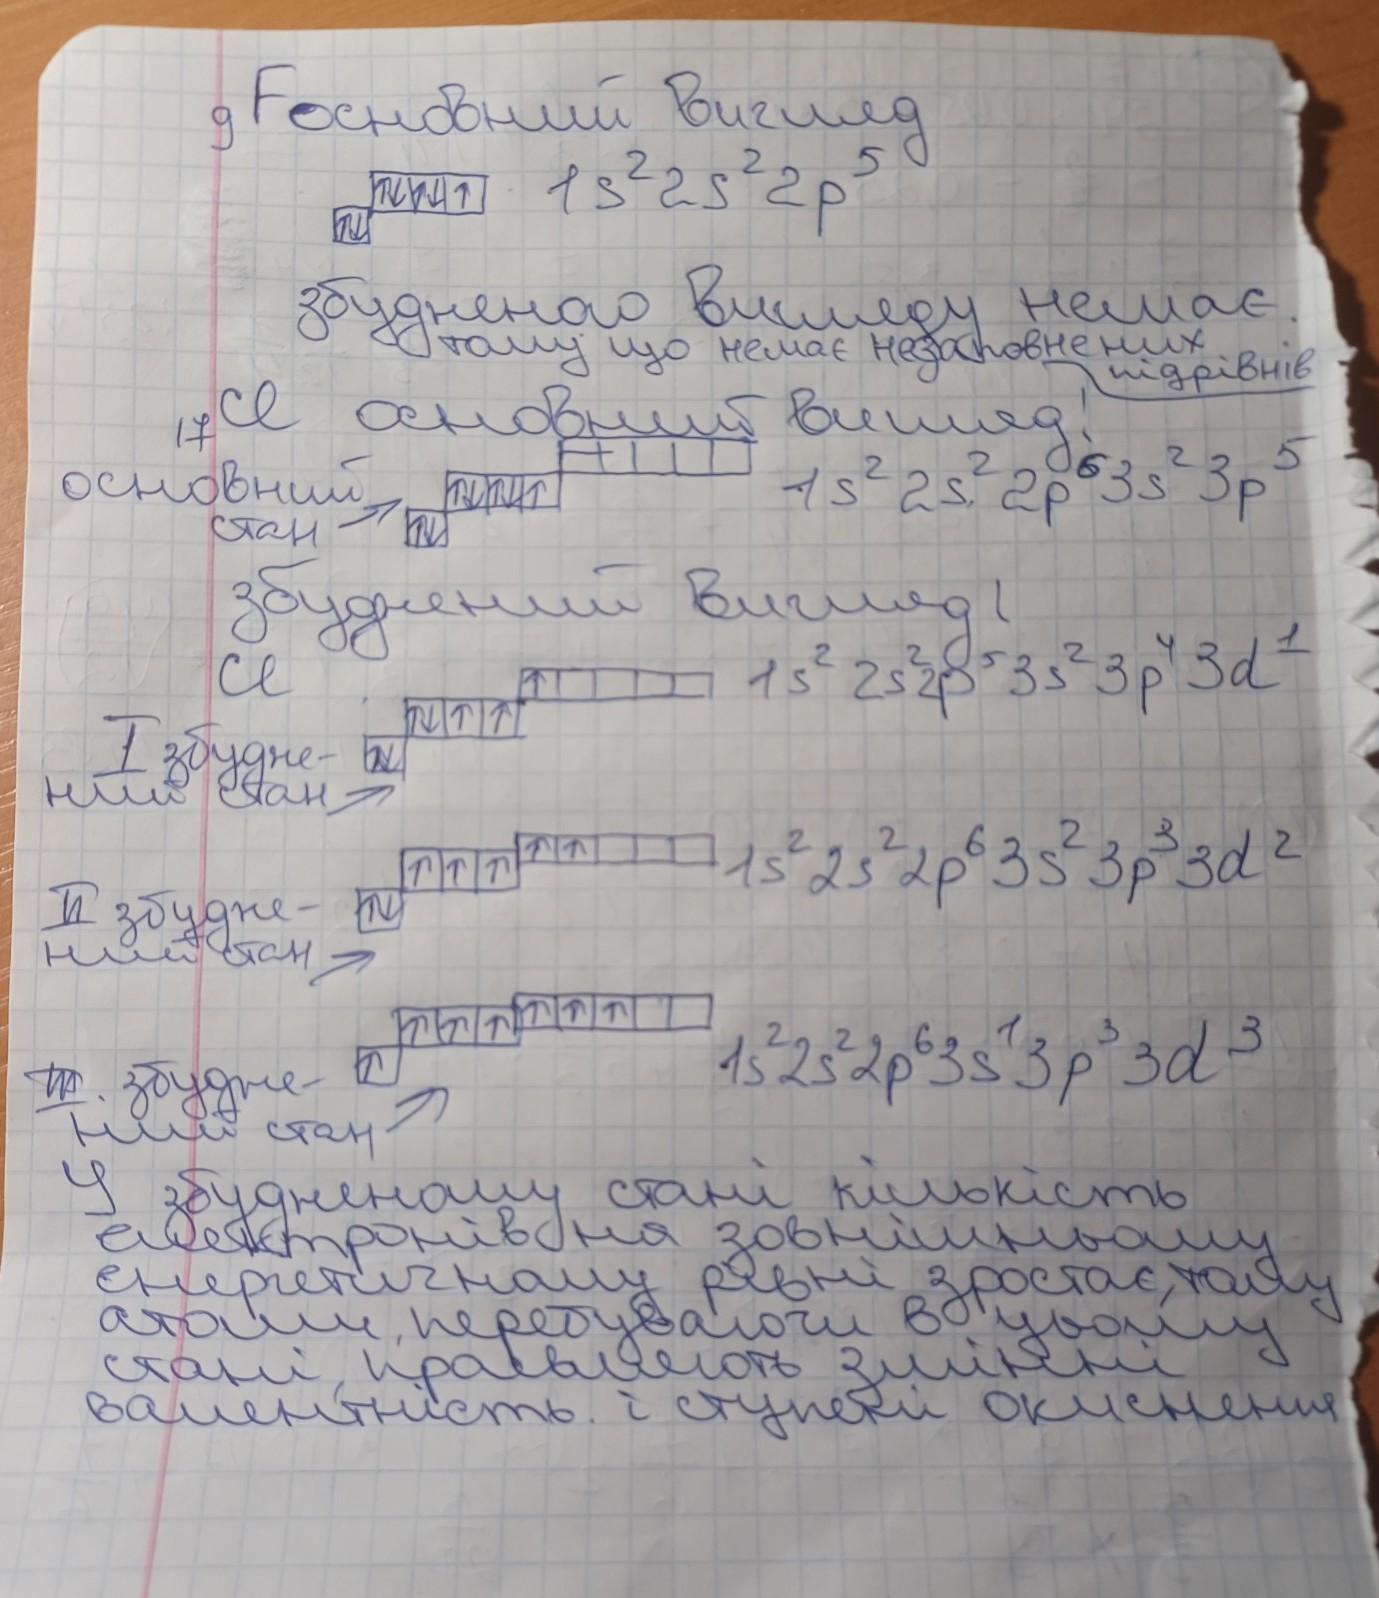 ₉F основний вигляд
1s² 2s² 2p⁵
збудненого вигляду немає.
тому що немає незаповнених
підрівнів
₁₇Cl основний вигляд!
основний
стан → 1s² 2s² 2p⁶ 3s² 3p⁵
збуднений вигляд!
Cl 1s² 2s² 2p⁵ 3s² 3p⁴ 3d¹
I збудне-
ний стан →
1s² 2s² 2p⁶ 3s² 3p³ 3d²
II збудне-
ний стан →
1s² 2s² 2p⁶ 3s¹ 3p³ 3d³
III. збудне-
ний стан →
У збудненому стані кількість
електронів на зовнішньому
енергетичному рівні зростає, тому
атоми, перебуваючи в цьому
стані, проявляють змінні
валентність. і ступені окиснення